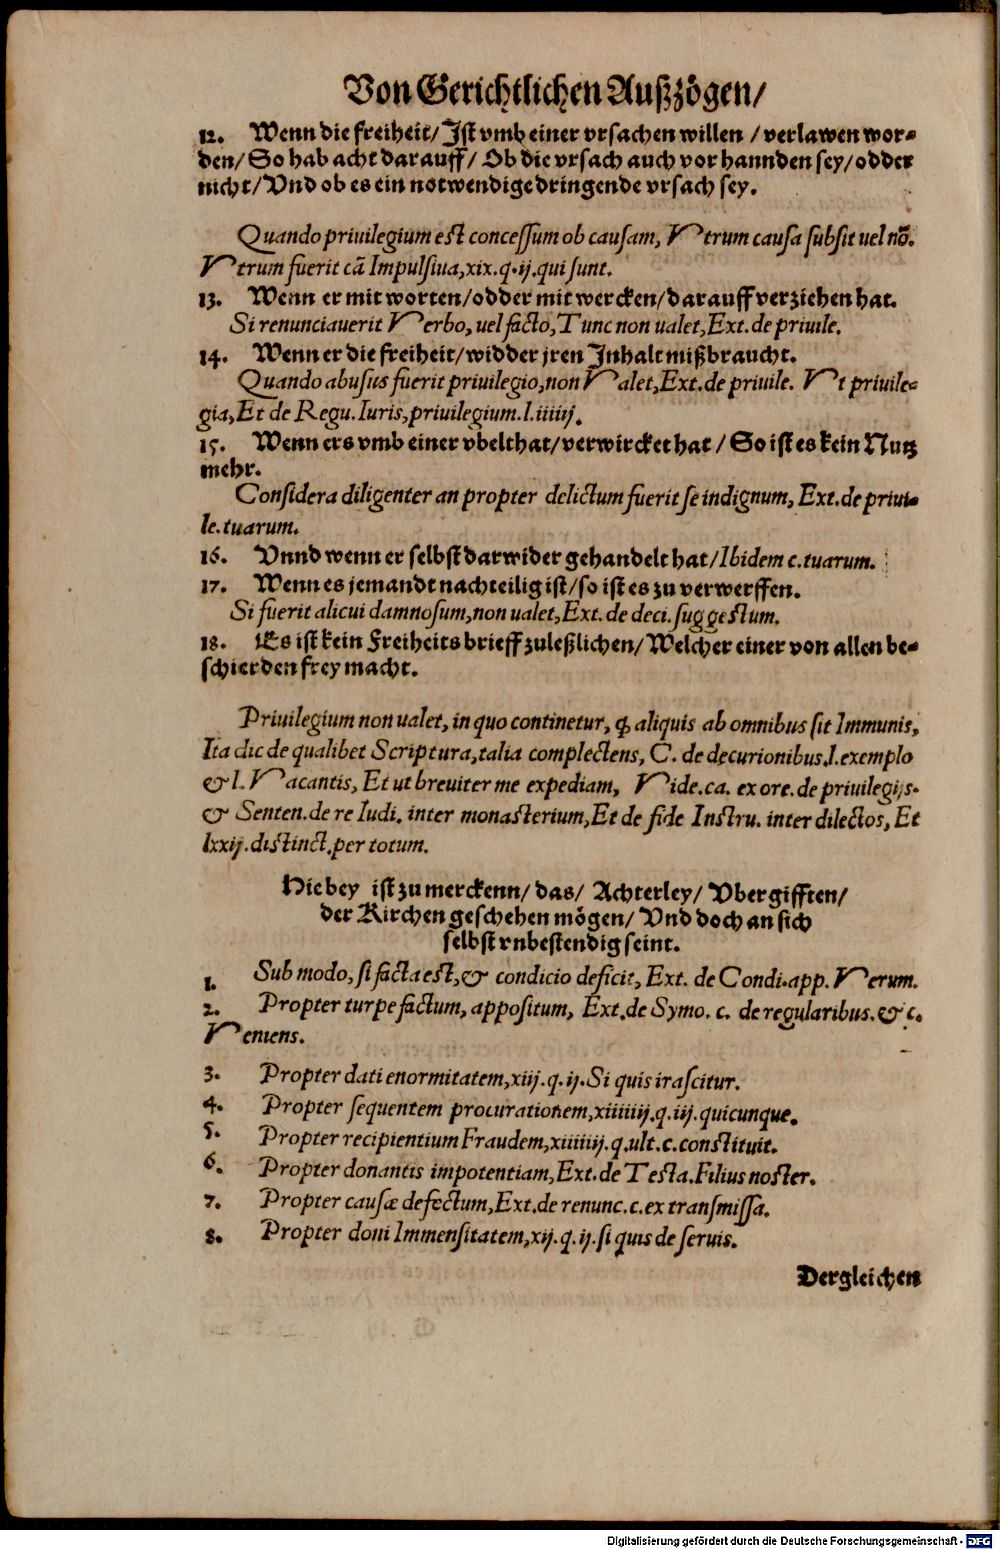 Von Gerichtlichen Außzögen/
12. Wenn die freiheit/ Ist vmb einer vrsachen willen / verlawen wor-
den/ So hab acht darauff/ Ob die vrsach auch vor hannden sey/ odder
nicht/ Vnd ob es ein notwendige dringende vrsach sey.
Quando priuilegium est concessum ob causam, Vtrum causa subsit uel nō.
Vtrum fuerit cā Impulsiua, xix. q. ij. qui sunt.
13. Wenn er mit worten/ odder mit wercken/ darauff verziehen hat.
Si renunciauerit Verbo, uel facto, Tunc non ualet, Ext. de priuile.
14. Wenn er die freiheit/ widder jren Inhalt mißbraucht.
Quando abusus fuerit priuilegio, non Valet, Ext. de priuile. Vt priuile-
gia, Et de Regu. Iuris, priuilegium. l. iiiiij.
15. Wenn ers vmb einer vbelthat/ verwircket hat / So ist es kein Nutz
mehr.
Considera diligenter an propter delictum fuerit se indignum, Ext. de priui-
le. tuarum.
16. Vnnd wenn er selbst darwider gehandelt hat/ Ibidem c. tuarum.
17. Wenn es jemandt nachteilig ist/ so ist es zu verwerffen.
Si fuerit alicui damnosum, non ualet, Ext. de deci. suggestum.
18. Es ist kein Freiheits brieff zuleßlichen/ Welcher einer von allen be-
schierden frey macht.
Priuilegium non ualet, in quo continetur, ꝙ aliquis ab omnibus sit Immunis,
Ita dic de qualibet Scriptura, talia complectens, C. de decurionibus. l. exemplo
& l. Vacantis, Et ut breuiter me expediam, Vide. ca. ex ore. de priuilegijs.
& Senten. de re Iudi. inter monasterium, Et de fide Instru. inter dilectos, Et
lxxij. distinct. per totum.
Hiebey ist zu merckenn/ das/ Achterley/ Vbergifften/
der Kirchen geschehen mögen/ Vnd doch an sich
selbst vnbestendig seint.
1. Sub modo, si facta est, & condicio deficit, Ext. de Condi. app. Verum.
2. Propter turpe factum, appositum, Ext. de Symo. c. de regularibus. & c.
Veniens.
3. Propter dati enormitatem, xiij. q. ij. Si quis irascitur.
4. Propter sequentem procurationem, xiiiiiij. q. iij. quicunque.
5. Propter recipientium Fraudem, xiiiiiij. q. ult. c. constituit.
6. Propter donantis impotentiam, Ext. de Testa. Filius noster.
7. Propter causæ defectum, Ext. de renunc. c. ex transmissa.
8. Propter doni Immensitatem, xij. q. ij. si quis de seruis.
Dergleichen
Digitalisierung gefördert durch die Deutsche Forschungsgemeinschaft - DFG